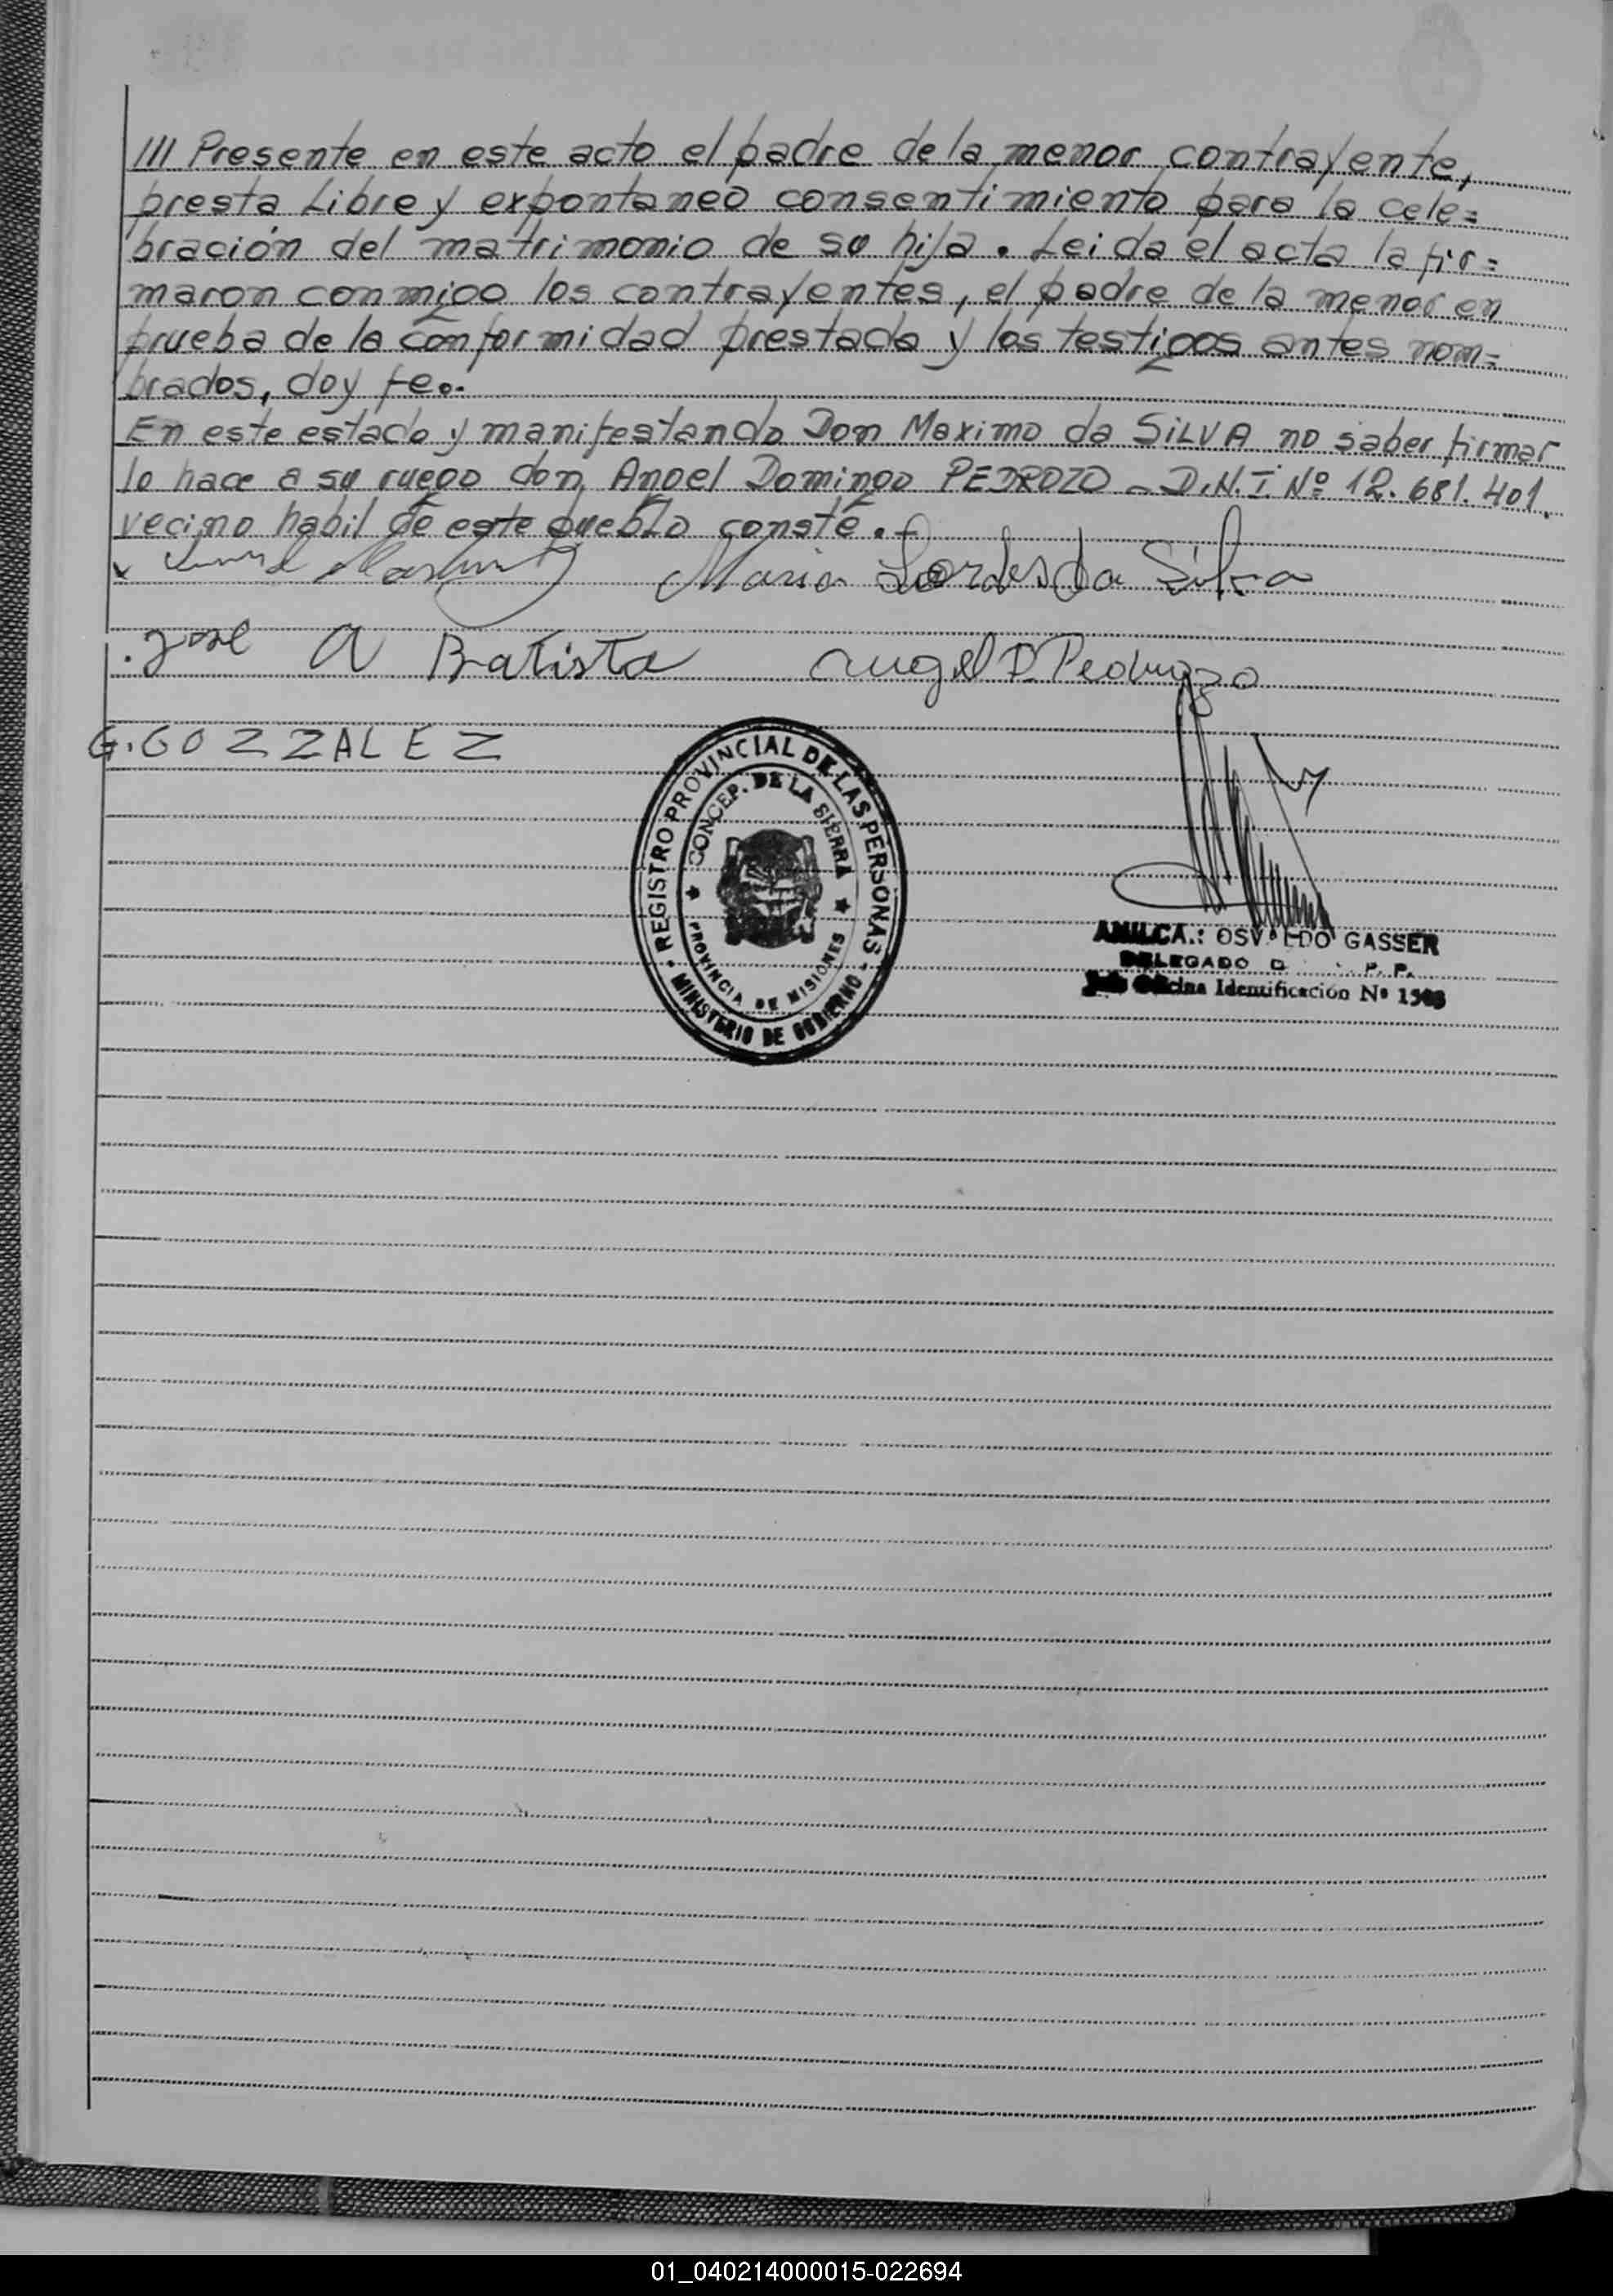 /// Presente en este acto el padre de la menor contrayente,
presta Libre y expontaneo consentimiento para la cele=
bración del matrimonio de su hija. Leida el acta la fir=
maron conmigo los contrayentes, el padre de la menor en
prueba de la conformidad prestada y los testigos antes nom=
brados, doy fe.-
En este estado y manifestando Don Maximo da SiLVA no saber firmar
lo hace a su ruego don Angel Domingo PEDROZO - D.N.I. Nº 12.681.401.
vecino habil de este pueblo conste.-
Maria Lordes da Silva
Jose A Batista Angel D. Pedrozo
G. GOZZALEZ
REGISTRO PROVINCIAL DE LAS PERSONAS
CONCEP. DE LA SIERRA
PROVINCIA DE MISIONES
MINISTERIO DE GOBIERNO
OSVALDO GASSER
DELEGADO
Oficina Identificación Nº
01_040214000015-022694